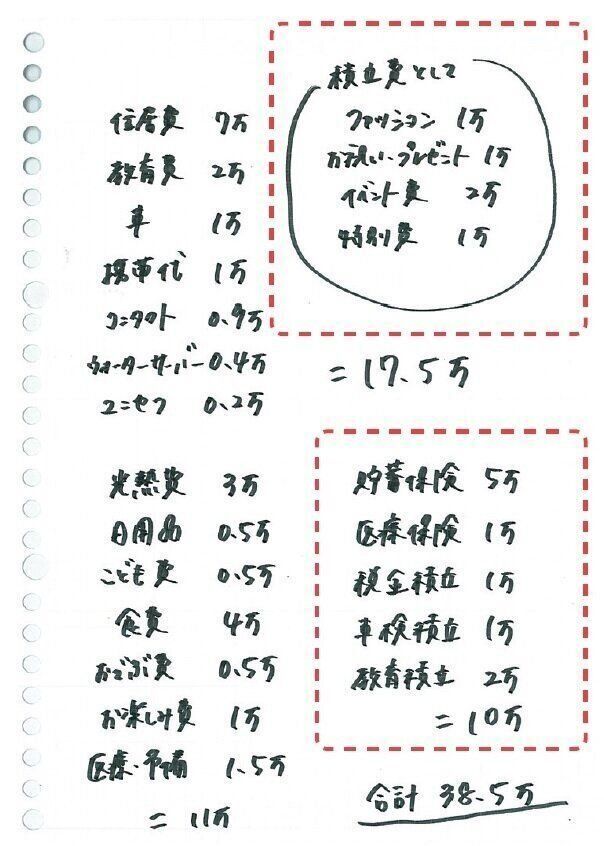 住居費 7万
教育費 2万
車 1万
携帯代 1万
コンタクト 0.9万
ウォーターサーバー 0.4万
ユニセフ 0.2万
積立費として
ファッション 1万
お祝い・プレゼント 1万
イベント費 2万
特別費 1万
= 17.5万
光熱費 3万
日用品 0.5万
こども費 0.5万
食費 4万
おでぶ費 0.5万
お楽しみ費 1万
医療・予備 1.5万
= 11万
貯蓄保険 5万
医療保険 1万
税金積立 1万
車検積立 1万
教育積立 2万
= 10万
合計 38.5万